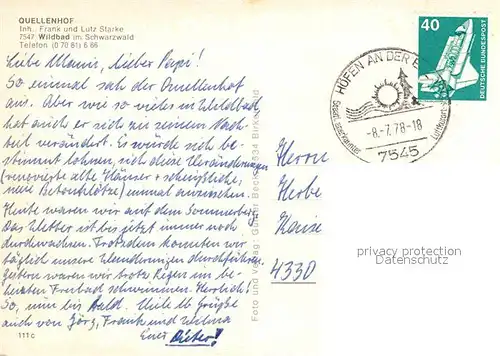 QUELLENHOF
Inh. Frank und Lutz Starke
7547 Wildbad im Schwarzwald
Telefon (0 70 81) 6 66
Liebe Mami, lieber Papi!
So einmal sah der Quellenhof
aus. Aber wie so vieles in Wildbad,
hat auch er sich zu seinem Nach-
teil verändert. Es würde sich be-
stimmt lohnen, sich diese Veränderungen
(renovierte alte Häuser + scheußliche,
neue Betonklötze) einmal anzusehen.
Heute waren wir auf dem Sommerberg.
Das Wetter ist bis jetzt immer noch
durchwachsen. Trotzdem konnten wir
täglich unsere Wanderungen durchführen.
Gestern waren wir trotz Regen im be-
heizten Freibad schwimmen. Herrlich!
So, nun bis bald. Viele lb. Grüße
auch von Jörg, Frank und
Euer Dieter!
111c
Foto und Verlag: Günter Beck
HÖFEN AN DER ENZ
-8.-7.78-18
7545
40
DEUTSCHE BUNDESPOST
Herrn
4330
privacy protection
Datenschutz